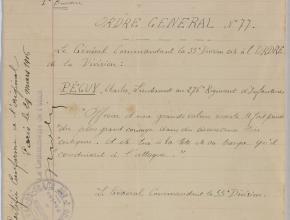 1er Bureau
ORDRE GENERAL N° 77.
Le Général Commandant la 55e Division cite à l'ORDRE
de la Division :
PEGUY, Charles, Lieutenant au 276e Régiment d'Infanterie
"Officier d'une grande valeur morale. A fait preuve
du plus grand courage dans des circonstances
critiques, et été tué à la tête de sa troupe qu'il
conduisait à l'attaque."
Le Général Commandant la 55e Division.
Certifié conforme à l'original
Paris le 29 mars 1915